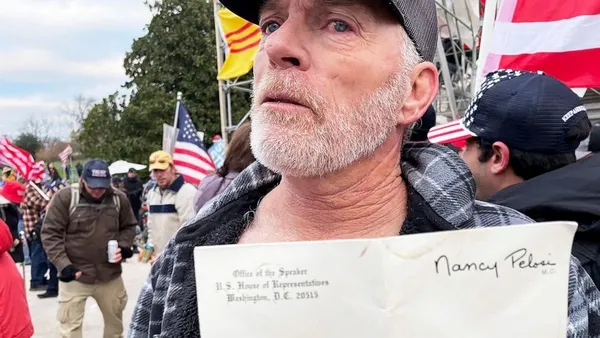 Office of the Speaker
U.S. House of Representatives
Washington, D.C. 20515
Nancy Pelosi
M.C.